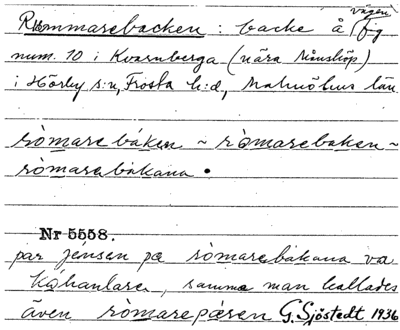 vägen
Rommarebacken : backe å fig
num. 10 i Kvarnberga (nära Månshöp)
i Hörby s:n, Frosta h:d, Malmöhus län
ròmarebáken ~ ròmarebaken ~
ròmarebakana .
Nr 5558.
par jénsen pa ròmarebakana va
, samma man kallades
även ròmarepáren G. Sjöstedt 1936